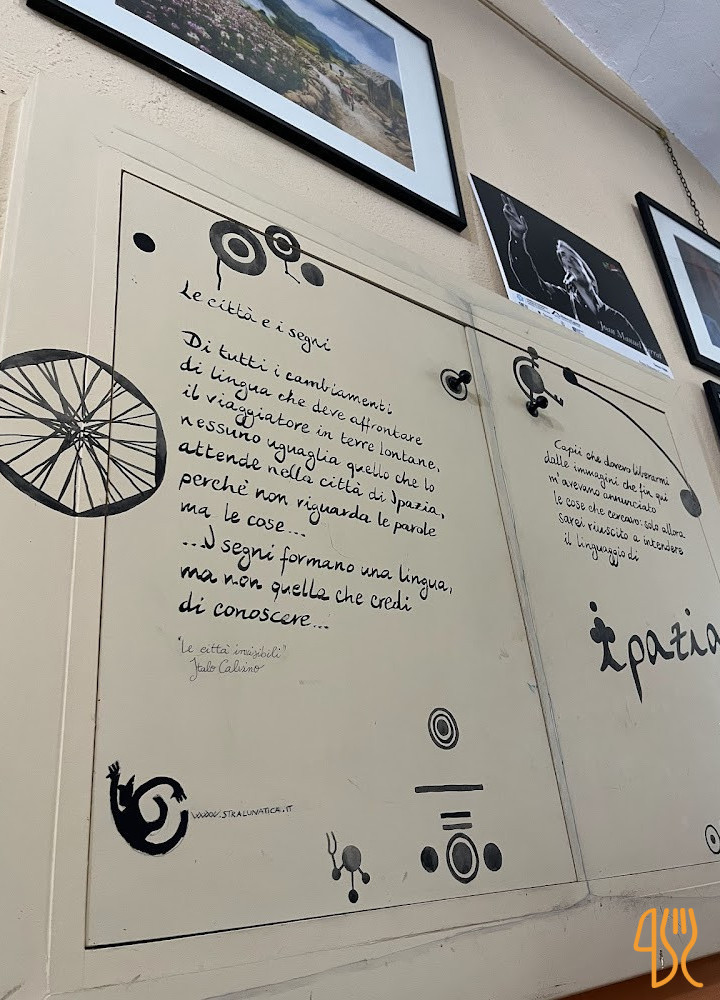 Le città e i segni
Di tutti i cambiamenti
di lingua che deve affrontare
il viaggiatore in terre lontane,
nessuno uguaglia quello che lo
attende nella città di Ipazia,
perchè non riguarda le parole
ma le cose...
...I segni formano una lingua,
ma non quella che credi
di conoscere...
"Le città invisibili"
Italo Calvino
WWW.STRALUNATICA.IT
Capii che dovevo liberarmi
dalle immagini che fin qui
m'avevano annunciato
le cose che cercavo: solo allora
sarei riuscito a intendere
il linguaggio di
ipazia
Joan Manuel Serrat